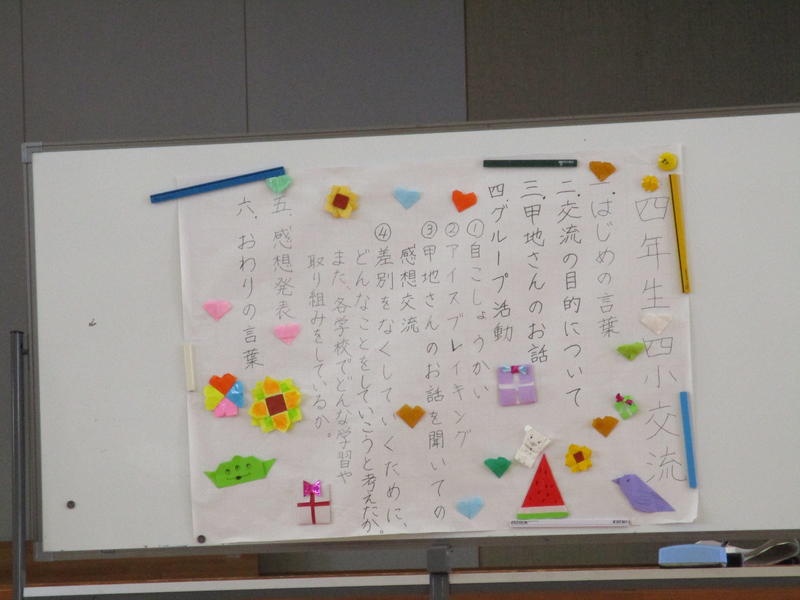 四年生 四小交流
一.はじめの言葉
二.交流の目的について
三.甲地さんのお話
四.グループ活動
①自こしょうかい
②アイスブレイキング
③甲地さんのお話を聞いての
感想交流
④差別をなくしていくために、
どんなことをしていこうと考えたか。
また、各学校でどんな学習や
取り組みをしているか。
五.感想発表
六.おわりの言葉